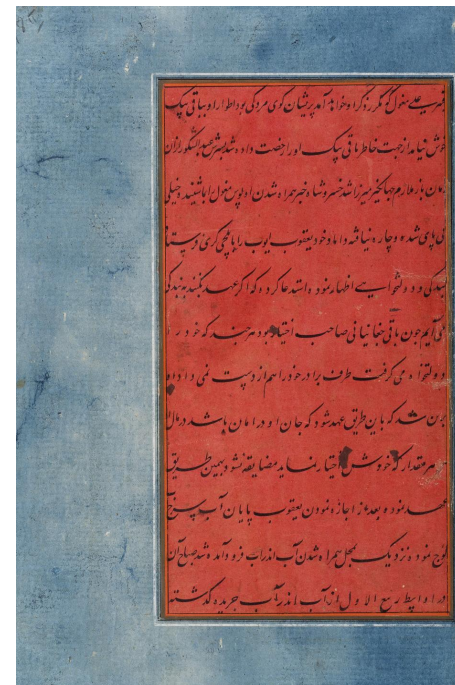 علی مغول گوگر روزگرا و خواهد آمد پریشان گوی مردکی بود اطوار او بباقی بیک
خوش نیامد از جهت خاطر باقی بیک او را رخصت داده شد پسرش عبدالشکور از آن
زمان باز ملازم جهانگیر میرزا شد خسرو شاه خبر همراه شدن اولوس مغول را شنیده خیلی
بی پای شده و چاره نیافته داماد خود یعقوب ایوب را
بندگی و دولتخواهی اظهار نمود استدعا کرده که اگر عهد بکنند ببندگی
می آیم چون باقی چغانیانی صاحب اختیار بود هر چند که خود را
دولتخواه می گرفت طرف برادر خود را هم از دست نمی داد
برین شد که باین طریق عهد شود که جان او در امان باشد در مال او
هر مقدار که خودش اختیار نماید مضایقه نشود بهمین طریق
عهد نموده بعد از اجازه نمودن یعقوب پایان آب سرخ
کوچ نموده نزدیک بمحل همراه شدن آب اندراب فرود آمده شد صباح آن
در اواسط ربیع الاول از آب اندرآب جریده گذشته